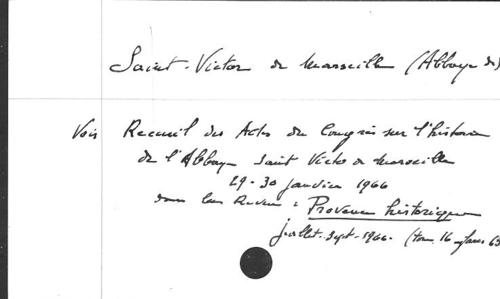 Saint-Victor de Marseille (Abbaye de)
Voir Recueil des Actes du Congrès sur l'histoire
de l'Abbaye Saint Victor de Marseille
29-30 janvier 1966
dans la Revue : Provence historique
juillet-sept-1966. (tome 16 fasc 65